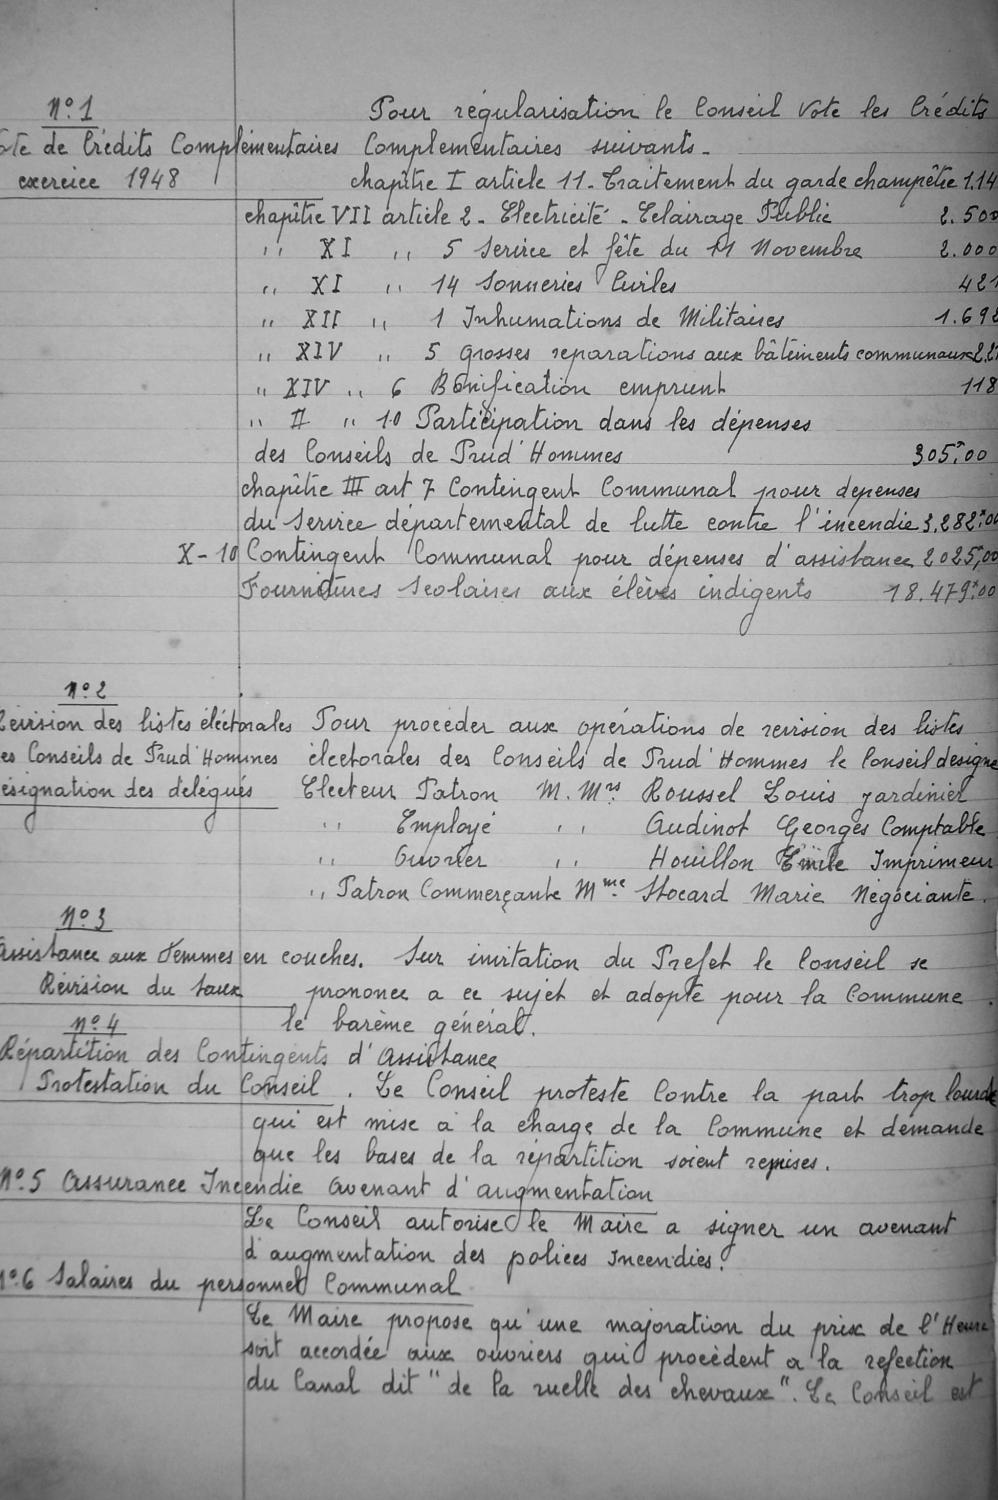 N° 1
Pour régularisation le Conseil Vote les Crédits
de Crédits Complémentaires Complementaires suivants -
exercice 1948 chapître I article 11 - Traitement du garde champêtre 1.14
chapître VII article 2 - Electricité - Eclairage Public 2.500
" XI " 5 Service et fête du 11 Novembre 2.000
" XI " 14 Sonneries Civiles 421
" XII " 1 Inhumations de Militaires 1.692
" XIV " 5 grosses reparations aux bâtiments communaux
" XIV " 6 Bonification emprunt 118
" II " 10 Participation dans les dépenses
des Conseils de Prud'Hommes 305,00
chapître III art 7 Contingent Communal pour depenses
du Service départemental de lutte contre l'incendie 3.282,00
X-10 Contingent Communal pour dépenses d'assistance 2025,00
Fournitures Scolaires aux élèves indigents 18.479,00
N° 2
Révision des listes éléctorales Pour procéder aux opérations de revision des listes
es Conseils de Prud'Hommes électorales des Conseils de Prud'Hommes le Conseil designe
ésignation des délégués Electeur Patron M. Mrs Roussel Louis jardinier
" Employé " Audinot Georges Comptable
" Ouvrier " Houillon Emile Imprimeur
" Patron Commerçante Mme Stocard Marie Négociante.
N° 3
Assistance aux Femmes en couches. Sur invitation du Préfet le Conseil se
Révision du taux prononce a ce sujet et adopte pour la Commune
le barème général.
N° 4
Répartition des Contingents d'Assistance
Protestation du Conseil. Le Conseil proteste Contre la part trop lourde
qui est mise à la charge de la Commune et demande
que les bases de la répartition soient reprises.
N° 5 Assurance Incendie Avenant d'augmentation
Le Conseil autorise le Maire a signer un avenant
d'augmentation des polices Incendies.
N° 6 Salaires du personnel Communal
Le Maire propose qu'une majoration du prix de l'Heure
soit accordée aux ouvriers qui procèdent a la refection
du Canal dit "de la ruelle des chevaux". Le Conseil est